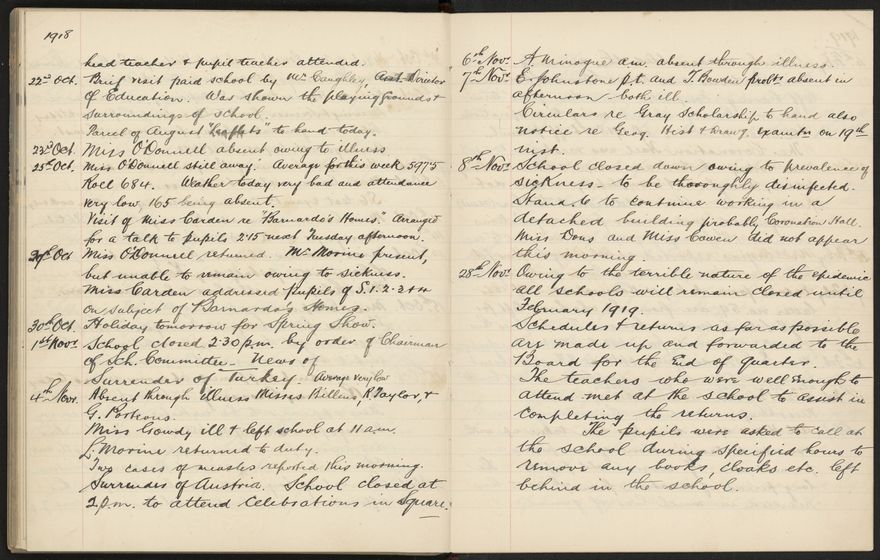 1918
head teacher & pupil teacher attended.
22nd Oct. Brief visit paid school by Mr Caughley, Asst. Director
of Education. Was shown the playing grounds &
surroundings of school.
Parcel of August "Leaflets" to hand today.
23rd Oct. Miss O'Donnell absent owing to illness
25th Oct. Miss O'Donnell still away. Average for this week 597.5
Roll 684. Weather today very bad and attendance
very low, 165 being absent.
Visit of Miss Carden re "Barnardo's Homes". Arranged
for a talk to pupils 2.15 next Tuesday afternoon.
29th Oct Miss O'Donnell returned. Mr Morine present,
but unable to remain owing to sickness.
Miss Carden addressed pupils of S.1-2-3+4
on subject of Barnardo's Homes.
30th Oct. Holiday tomorrow for Spring Show.
1st Novr. School closed 2.30 p.m. by order of Chairman
of Sch. Committee. News of
Surrender of Turkey. Average very low
4th Novr. Absent through illness Misses Billens, R. Taylor, &
G. Porteous.
Miss Gowdy ill & left school at 11 a.m.
L. Morine returned to duty.
Two cases of measles reported this morning.
Surrender of Austria. School closed at
2 p.m. to attend Celebrations in Square.
6th Novr. A. Minogue a.m. absent through illness.
7th Novr. E. Johnstone p.t. and T. Bowden probtr absent in
afternoon both ill.
Circulars re Gray Scholarship to hand also
notice re Geog. Hist & Draw'g. Examtn on 19th
inst.
8th Novr. School closed down owing to prevalence of
sickness - to be thoroughly disinfected.
Stand. 6 to continue working in a
detached building probably Coronation Hall.
Miss Dons and Miss Cowen did not appear
this morning.
28th Novr. Owing to the terrible nature of the epidemic
all schools will remain closed until
February 1919.
Schedules & returns as far as possible
are made up and forwarded to the
Board for the End of quarter.
The teachers who were well enough to
attend met at the school to assist in
completing the returns.
The pupils were asked to call at
the school during specified hours to
remove any books, cloaks etc. left
behind in the school.